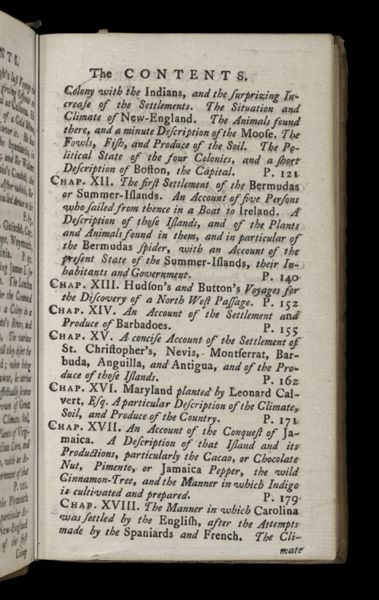 The CONTENTS.
Colony with the Indians, and the ſurprizing In-
creaſe of the Settlements. The Situation and
Climate of New-England. The Animals found
there, and a minute Deſcription of the Mooſe. The
Fowls, Fiſh, and Produce of the Soil. The Po-
litical State of the four Colonies, and a ſhort
Deſcription of Boſton, the Capital. P. 121
CHAP. XII. The firſt Settlement of the Bermudas
or Summer-Iſlands. An Account of five Perſons
who ſailed from thence in a Boat to Ireland. A
Deſcription of thoſe Iſlands, and of the Plants
and Animals found in them, and in particular of
the Bermudas Spider, with an Account of the
preſent State of the Summer-Iſlands, their In-
habitants and Government. P. 140
CHAP. XIII. Hudſon's and Button's Voyages for
the Diſcovery of a North Weſt Paſſage. P. 152
CHAP. XIV. An Account of the Settlement and
Produce of Barbadoes. P. 155
CHAP. XV. A conciſe Account of the Settlement of
St. Chriſtopher's, Nevis, Montſerrat, Bar-
buda, Anguilla, and Antigua, and of the Pro-
duce of thoſe Iſlands. P. 162
CHAP. XVI. Maryland planted by Leonard Cal-
vert, Eſq. A particular Deſcription of the Climate,
Soil, and Produce of the Country. P. 171
CHAP. XVII. An Account of the Conqueſt of Ja-
maica. A Deſcription of that Iſland and its
Productions, particularly the Cacao, or Chocolate
Nut, Pimento, or Jamaica Pepper, the wild
Cinnamon-Tree, and the Manner in which Indigo
is cultivated and prepared. P. 179
CHAP. XVIII. The Manner in which Carolina
was ſettled by the Engliſh, after the Attempts
made by the Spaniards and French. The Cli-
mate